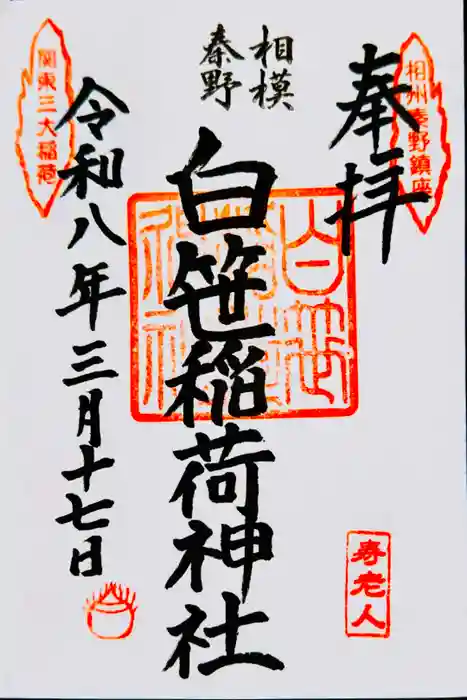 相州秦野鎮座
奉拝
相模
秦野
白笹稲荷神社
令和八年三月十七日
関東三大稲荷
寿老人